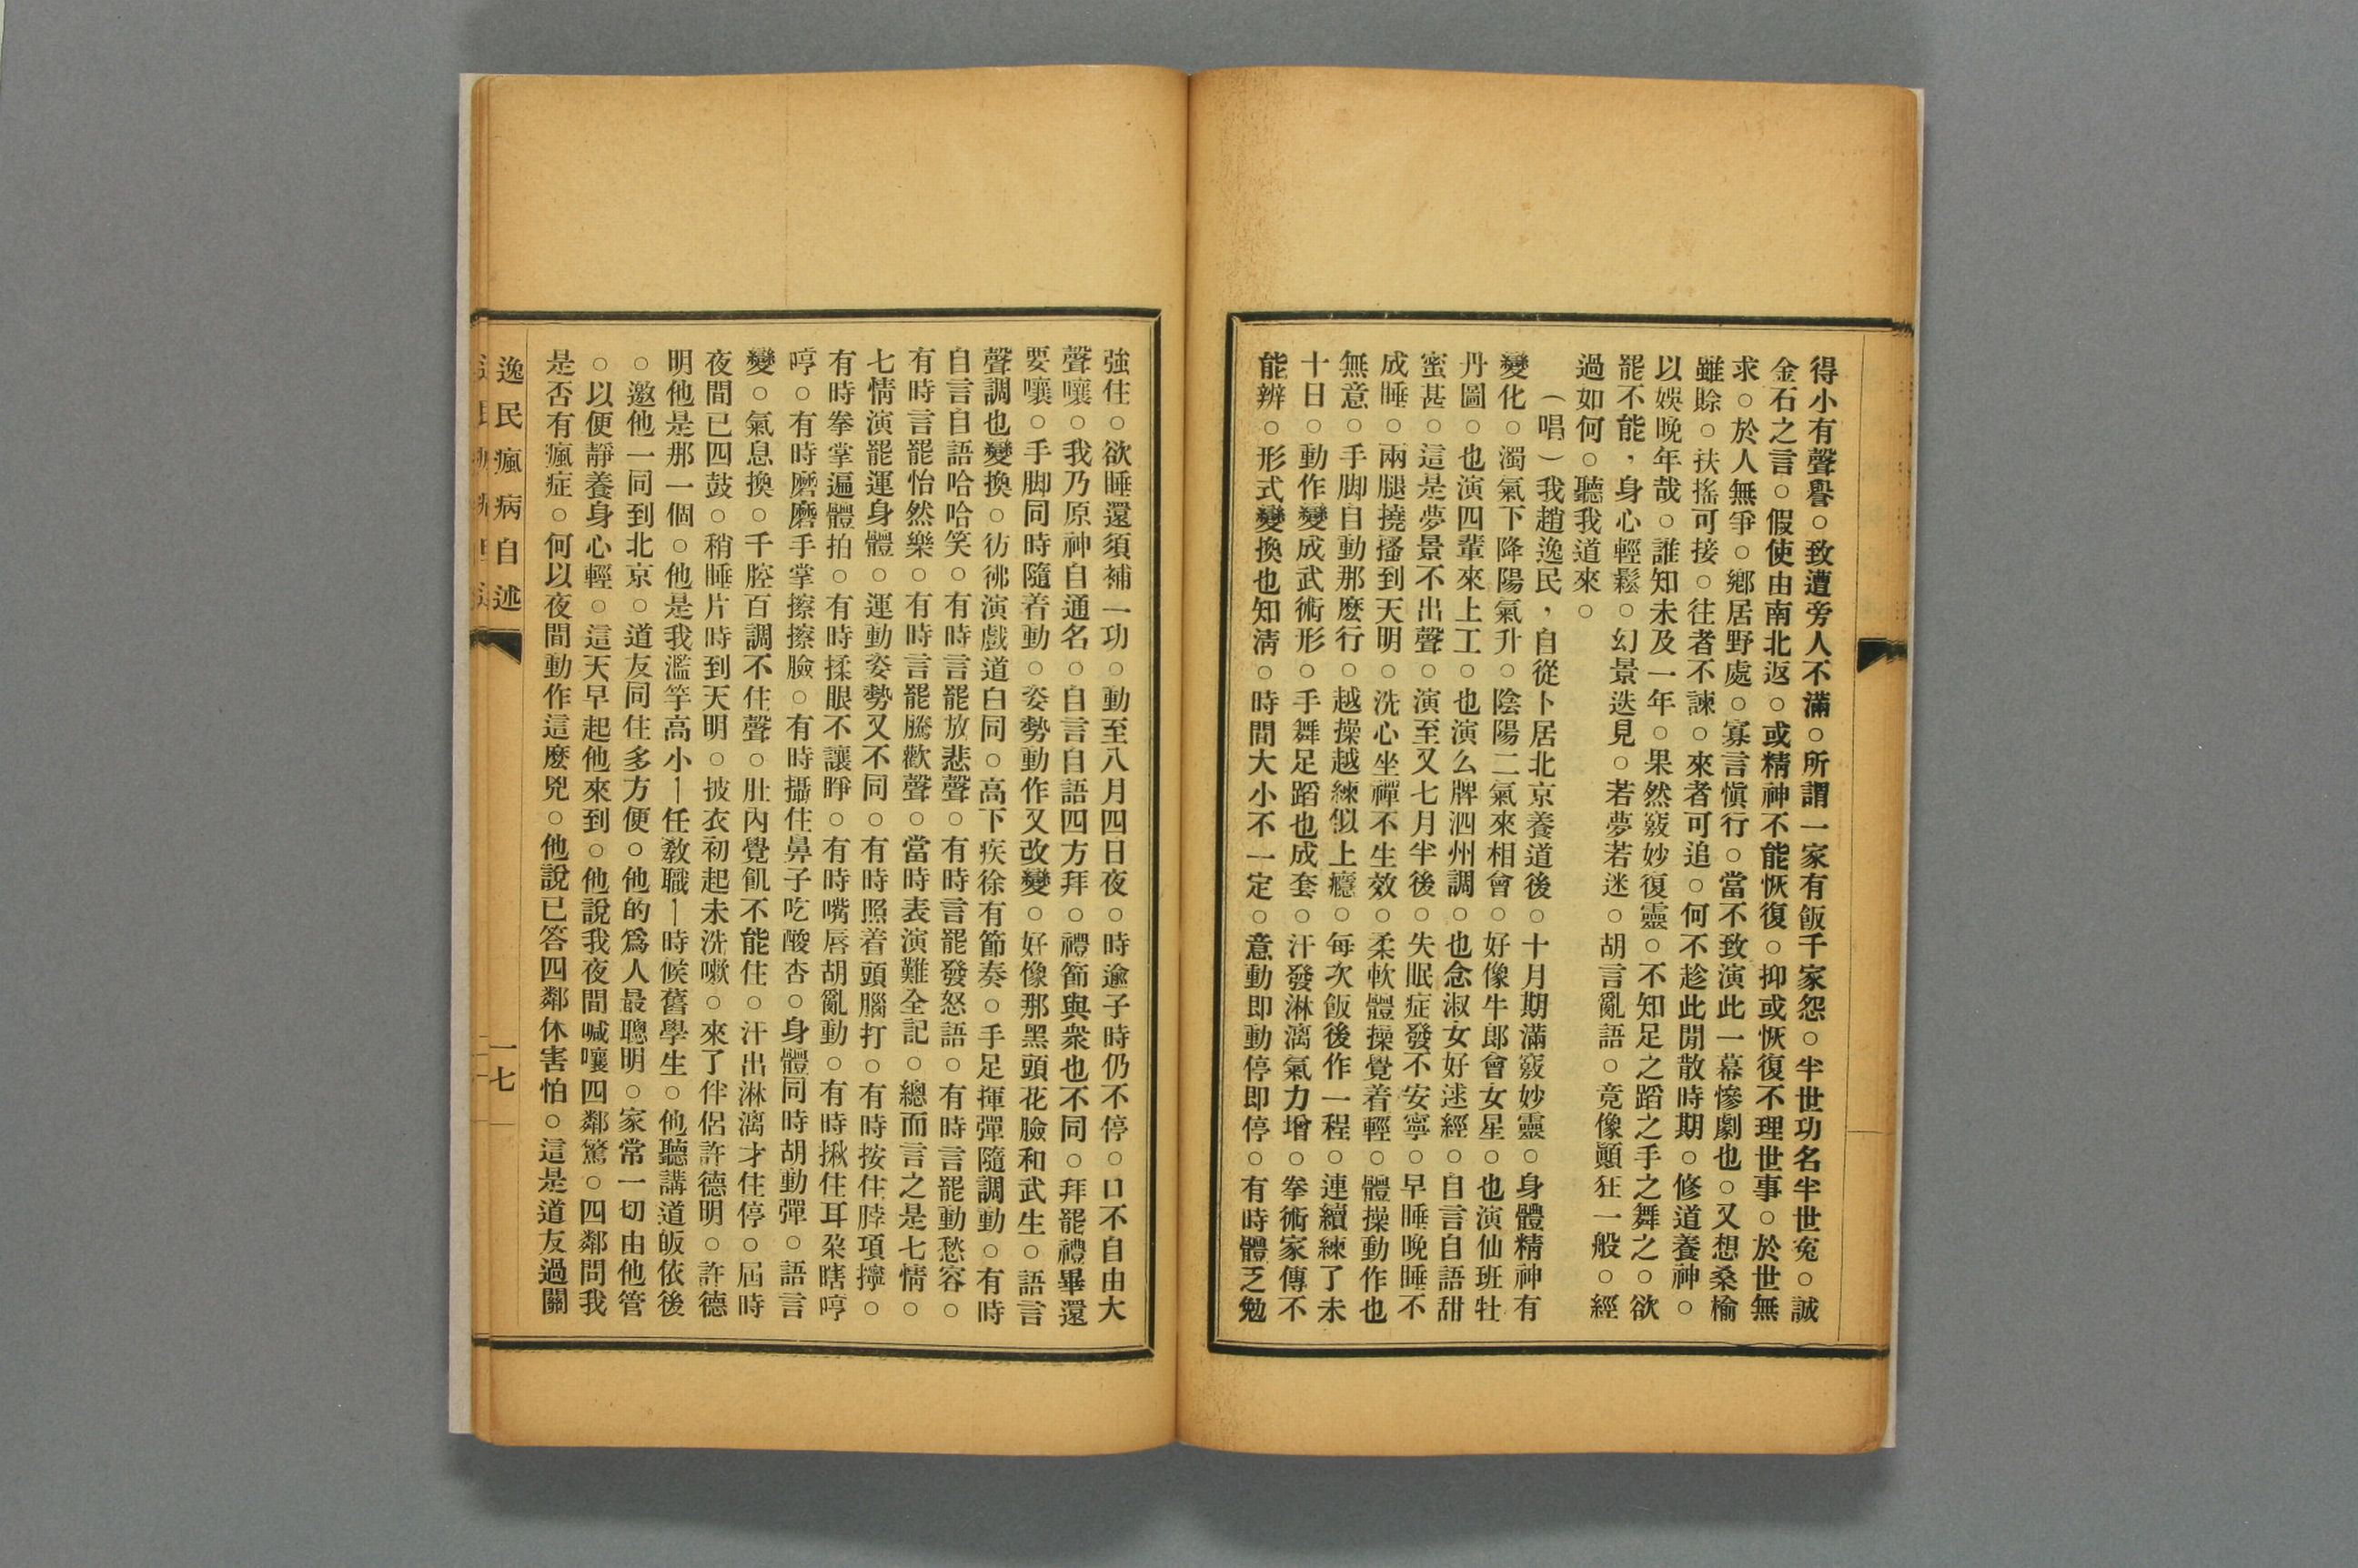 得小有聲譽。致遭旁人不滿。所謂一家有飯千家怨。半世功名半世寃。誠
金石之言。假使由南北返。或精神不能恢復。抑或恢復不理世事。於世無
求。於人無爭。鄉居野處。寡言愼行。當不致演此一幕慘劇也。又想桑榆
雖賒。扶搖可接。往者不諫。來者可追。何不趁此閒散時期。修道養神。
以娛晚年哉。誰知未及一年。果然竅妙復靈。不知足之蹈之手之舞之。欲
罷不能，身心輕鬆。幻景迭見。若夢若迷。胡言亂語。竟像顚狂一般。經
過如何。聽我道來。
（唱）我趙逸民，自從卜居北京養道後。十月期滿竅妙靈。身體精神有
變化。濁氣下降陽氣升。陰陽二氣來相會。好像牛郎會女星。也演仙班壯
丹圖。也演四輩來上工。也演么牌泗州調。也念淑女好逑經。自言自語甜
蜜甚。這是夢景不出聲。演至又七月半後。失眠症發不安寧。早睡晚睡不
成睡。兩腿撓搔到天明。洗心坐禪不生效。柔軟體操覺着輕。體操動作也
無意。手脚自動那麽行。越操越練似上癮。每次飯後作一程。連續練了未
十日。動作變成武術形。手舞足蹈也成套。汗發淋漓氣力增。拳術家傳不
能辨。形式變換也知淸。時間大小不一定。意動即動停即停。有時體乏勉
強住。欲睡還須補一功。動至八月四日夜。時逾子時仍不停。口不自由大
聲嚷。我乃原神自通名。自言自語四方拜。禮節與衆也不同。拜罷禮畢還
要嚷。手脚同時隨着動。姿勢動作又改變。好像那黑頭花臉和武生。語言
聲調也變換。彷彿演戲道白同。高下疾徐有節奏。手足揮彈隨調動。有時
自言自語哈哈笑。有時言罷放悲聲。有時言罷發怒語。有時言罷動愁容。
有時言罷怡然樂。有時言罷騰歡聲。當時表演難全記。總而言之是七情。
七情演罷運身體。運動姿勢又不同。有時照着頭腦打。有時按住脖項擰。
有時拳掌遍體拍。有時揉眼不讓睜。有時嘴唇胡亂動。有時揪住耳朶瞎哼
哼。有時磨磨手掌擦擦臉。有時攝住鼻子吃酸杏。身體同時胡動彈。語言
變。氣息換。千腔百調不住聲。肚內覺飢不能住。汗出淋漓才住停。屆時
夜間已四鼓。稍睡片時到天明。披衣初起未洗嗽。來了伴侶許德明。許德
明他是那一個。他是我濫竽高小—任敎職—時候舊學生。他聽講道皈依後
。邀他一同到北京。道友同住多方便。他的爲人最聰明。家常一切由他管
。以便靜養身心輕。這天早起他來到。他說我夜間喊嚷四鄰驚。四鄰問我
是否有瘋症。何以夜間動作這麽兇。他說已答四鄰休害怕。這是道友過關
逸民瘋病自述
一七